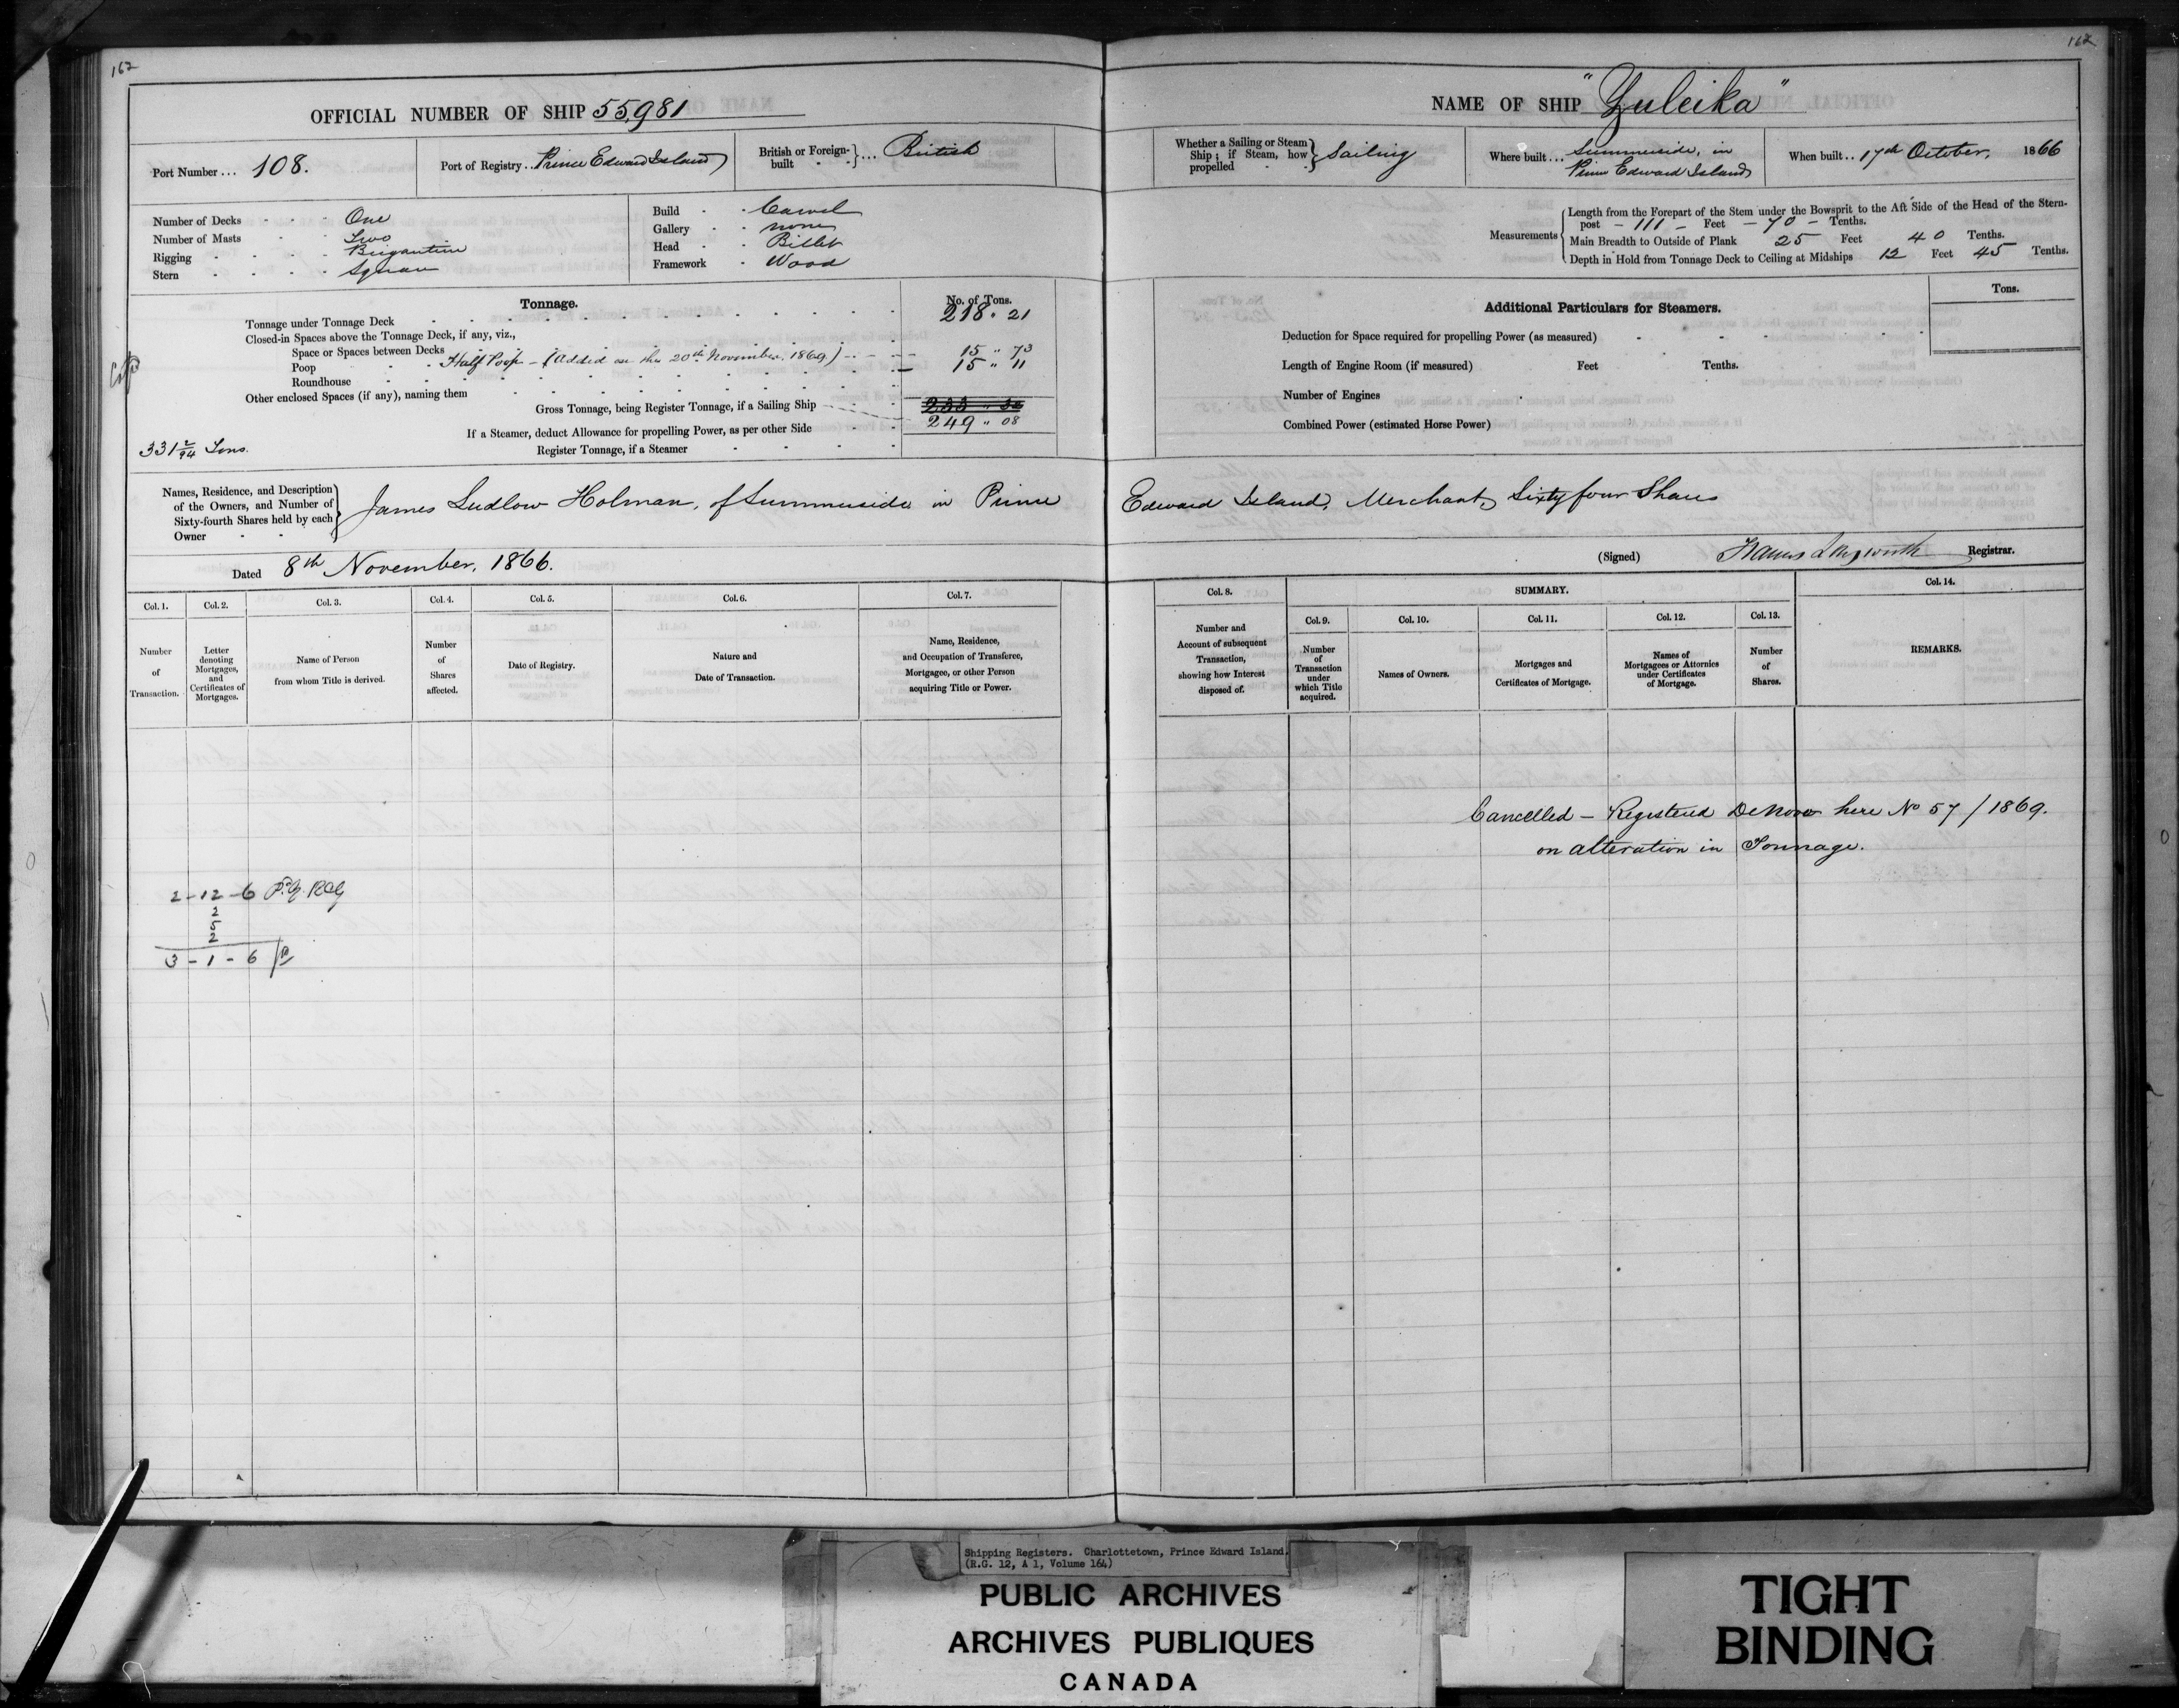 162
OFFICIAL NUMBER OF SHIP 55,981
Port Number ... 108.
Port of Registry .. Prince Edward Island
British or Foreign-built } ... British
Number of Decks - - - One
Number of Masts - - Two
Rigging - - - - Brigantine
Stern - - - - Square
Build - - Carvel
Gallery - - none
Head - - Billet
Framework - Wood
Tonnage.
No. of Tons.
Tonnage under Tonnage Deck 218 " 21
Closed-in Spaces above the Tonnage Deck, if any, viz.,
Space or Spaces between Decks Half Poop - (added on the 20th November, 1869) - - - 15 " 73
Poop 15 " 11
Roundhouse
Other enclosed Spaces (if any), naming them
Gross Tonnage, being Register Tonnage, if a Sailing Ship 233 " 32
249 " 08
If a Steamer, deduct Allowance for propelling Power, as per other Side
331 2/94 Tons.
Register Tonnage, if a Steamer
Names, Residence, and Description
of the Owners, and Number of
Sixty-fourth Shares held by each
Owner - -
James Ludlow Holman, of Summerside in Prince
Dated 8th November, 1866.
Col. 1.
Number
of
Transaction.
Col. 2.
Letter
denoting
Mortgages,
and
Certificates of
Mortgages.
Col. 3.
Name of Person
from whom Title is derived.
Col. 4.
Number
of
Shares
affected.
Col. 5.
Date of Registry.
Col. 6.
Nature and
Date of Transaction.
Col. 7.
Name, Residence,
and Occupation of Transferee,
Mortgagee, or other Person
acquiring Title or Power.
2-12-6
2
5
2
3-1-6
162
NAME OF SHIP "Zuleika"
Whether a Sailing or Steam
Ship; if Steam, how
propelled - -
Sailing
Where built ... Summerside, in
Prince Edward Island
When built .. 17th October, 1866
Measurements
Length from the Forepart of the Stem under the Bowsprit to the Aft Side of the Head of the Stern-
post - 111 - Feet - 70 - Tenths.
Main Breadth to Outside of Plank 25 Feet 40 Tenths.
Depth in Hold from Tonnage Deck to Ceiling at Midships 12 Feet 45 Tenths.
Additional Particulars for Steamers.
Tons.
Deduction for Space required for propelling Power (as measured)
Length of Engine Room (if measured) Feet Tenths.
Number of Engines
Combined Power (estimated Horse Power)
Edward Island, Merchant, Sixty four Shares
(Signed) Registrar.
Col. 8.
Number and
Account of subsequent
Transaction,
showing how Interest
disposed of.
SUMMARY.
Col. 9.
Number
of
Transaction
under
which Title
acquired.
Col. 10.
Names of Owners.
Col. 11.
Mortgages and
Certificates of Mortgage.
Col. 12.
Names of
Mortgagees or Attornies
under Certificates
of Mortgage.
Col. 13.
Number
of
Shares.
Col. 14.
REMARKS.
Cancelled - Registered De Novo here No 57/1869.
on alteration in Tonnage.
Shipping Registers. Charlottetown, Prince Edward Island.
(R.G. 12, A 1, Volume 164)
PUBLIC ARCHIVES
ARCHIVES PUBLIQUES
CANADA
TIGHT
BINDING